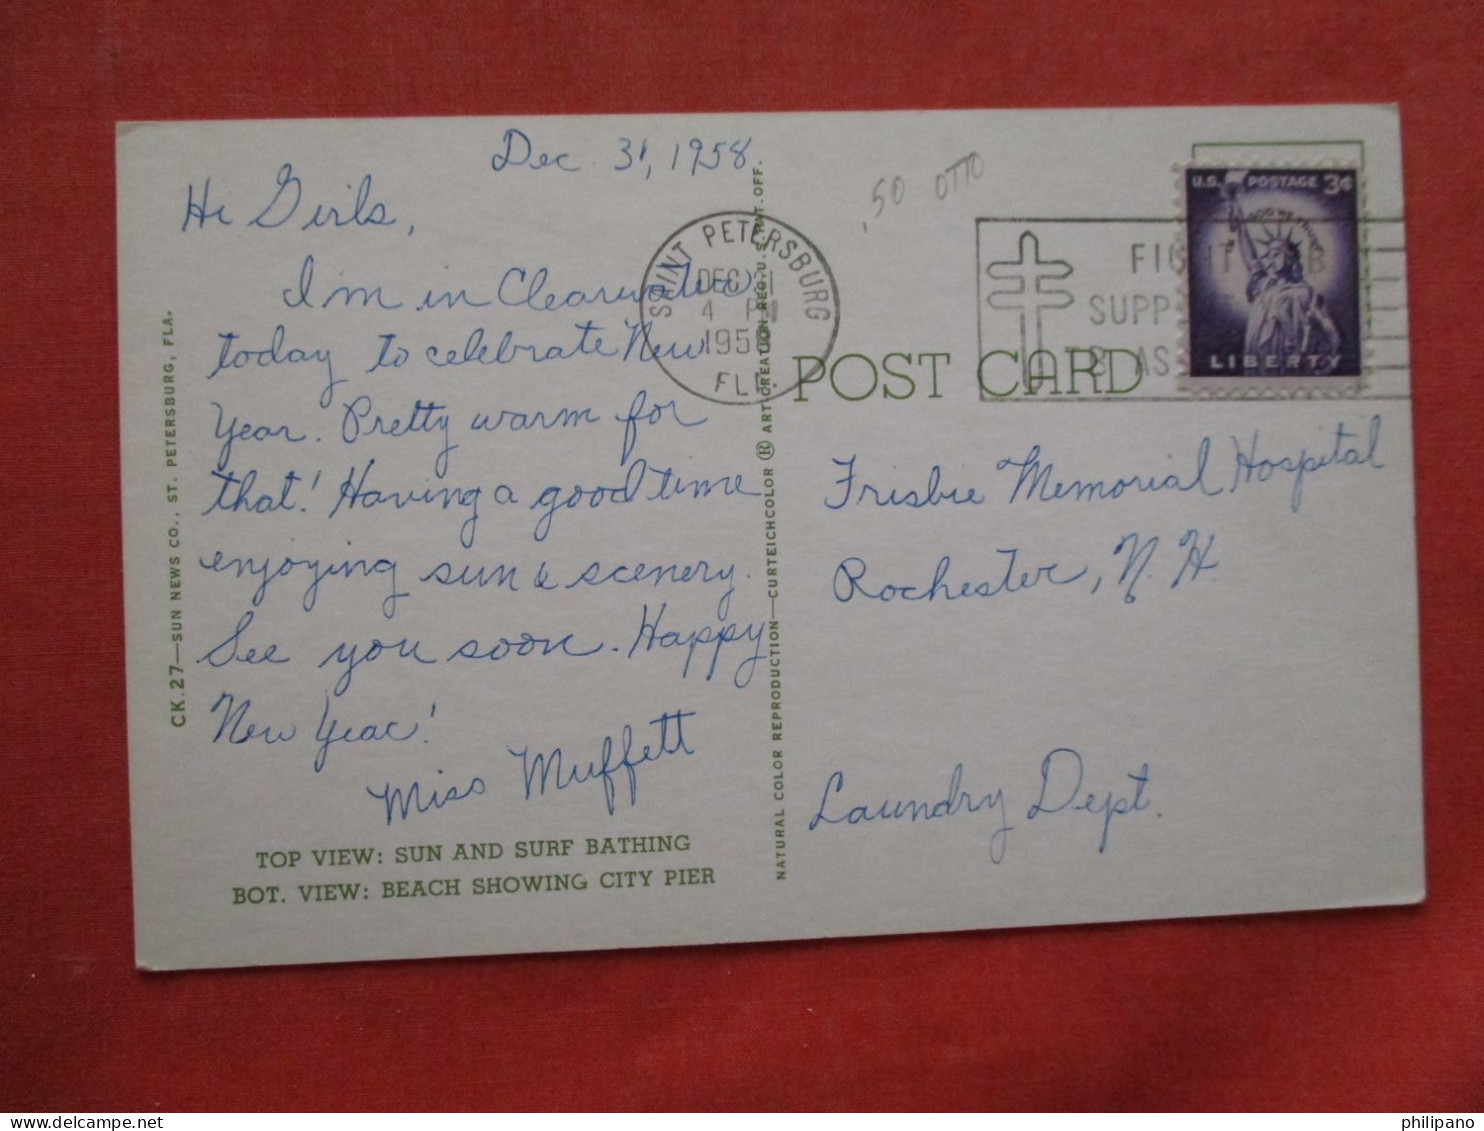 Dec 31, 1958
Hi Girls,
I'm in Clearwater
today to celebrate New
Year. Pretty warm for
that! Having a good time
enjoying sun & scenery.
See you soon. Happy
New Year!
Miss Muffett
TOP VIEW: SUN AND SURF BATHING
BOT. VIEW: BEACH SHOWING CITY PIER
CK.27—SUN NEWS CO., ST. PETERSBURG, FLA.
NATURAL COLOR REPRODUCTION—CURTEICHCOLOR ® ART-CREATION REG. U.S. PAT. OFF.
SAINT PETERSBURG
DEC 31
4 PM
1958
FLA.
.50 OTTO
FIGHT TB
SUPPORT
TB ASS
U.S. POSTAGE 3¢
IN GOD WE TRUST
LIBERTY
POST CARD
Frisbie Memorial Hospital
Rochester, N.H.
Laundry Dept.
philipano